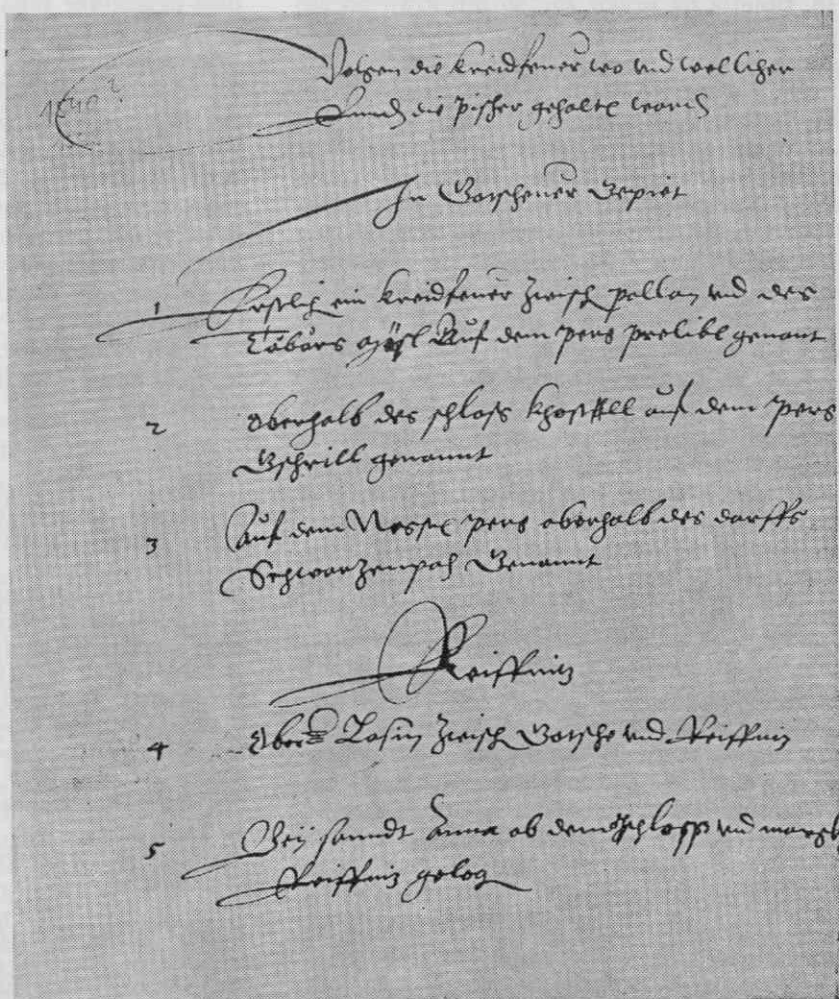 1540?
Volgen die Kreidfeuer wo vnd wellicher
die pisher gehalten worden
In Gotscheuer Gepiet
1 Erstlich ein Kreidfeuer zwisch pollan vnd des
Tabärs auf dem perg prelibl genant
2 Oberhalb des schloss khostll auf dem perg
Gschrill genannt
3 Auf dem Nessl perg oberhalb des dorffs
Schwarzenpach Genannt
Reiffnitz
4 Ober Lasin zwisch Gotsche vnd Reiffniz
5 Bey sanndt Anna ob dem schloss vnd margkt
Reiffniz geleg